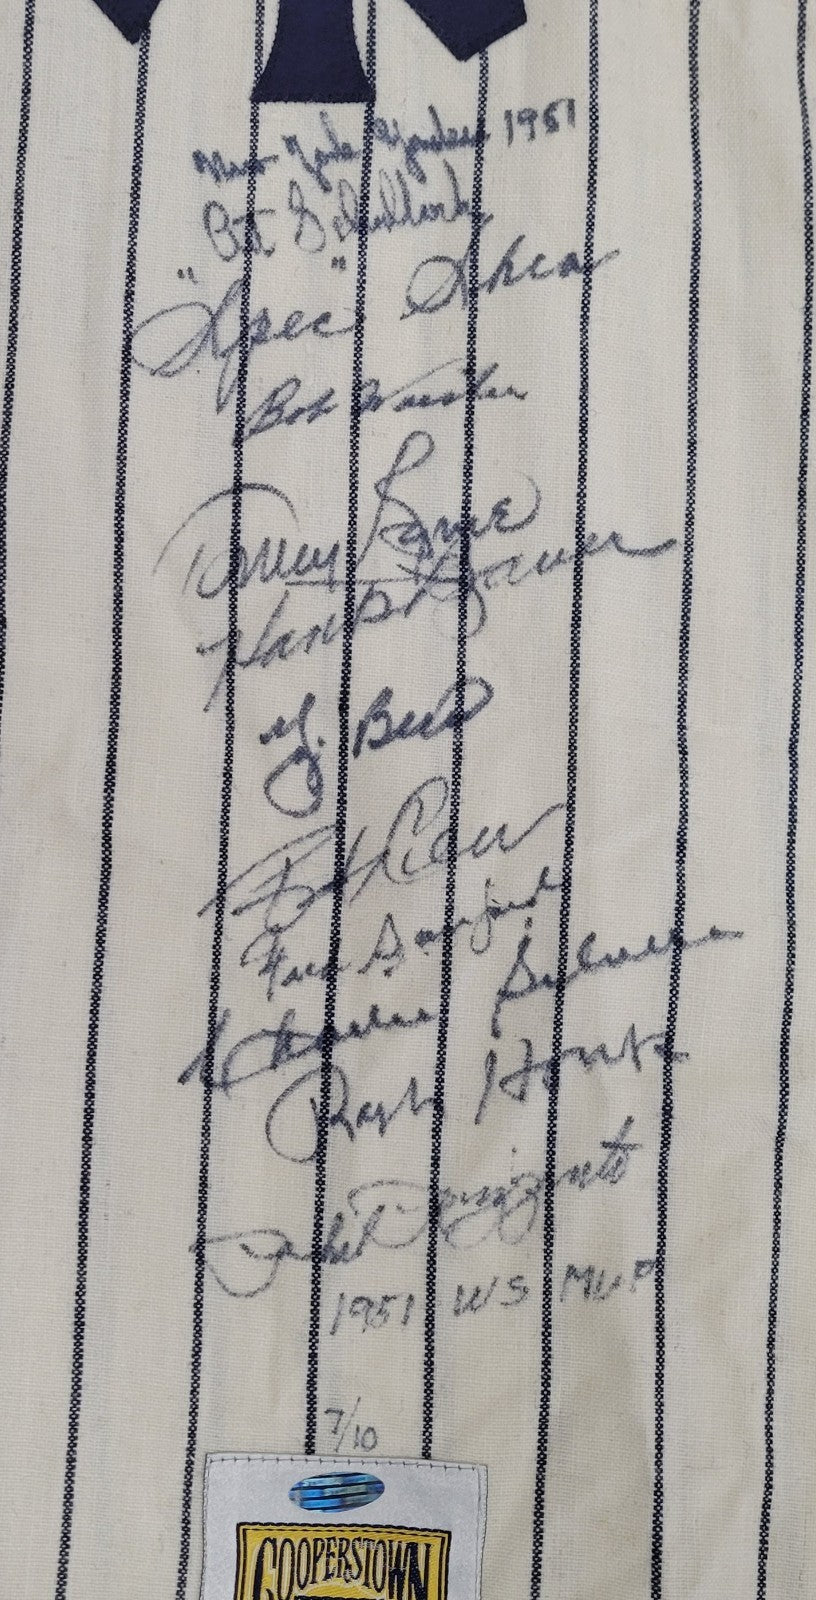 New York Yankees 1951
Art Schallock
"Spec" Shea
Bob Wiesler
Tommy Byrne
Hank Bauer
Y. Berra
Bob Cerv
Fred Sanford
Charlie Silvera
Ralph Houk
Jackel Dorizzonto
1951 WS MVP
7/10
COOPERSTOWN